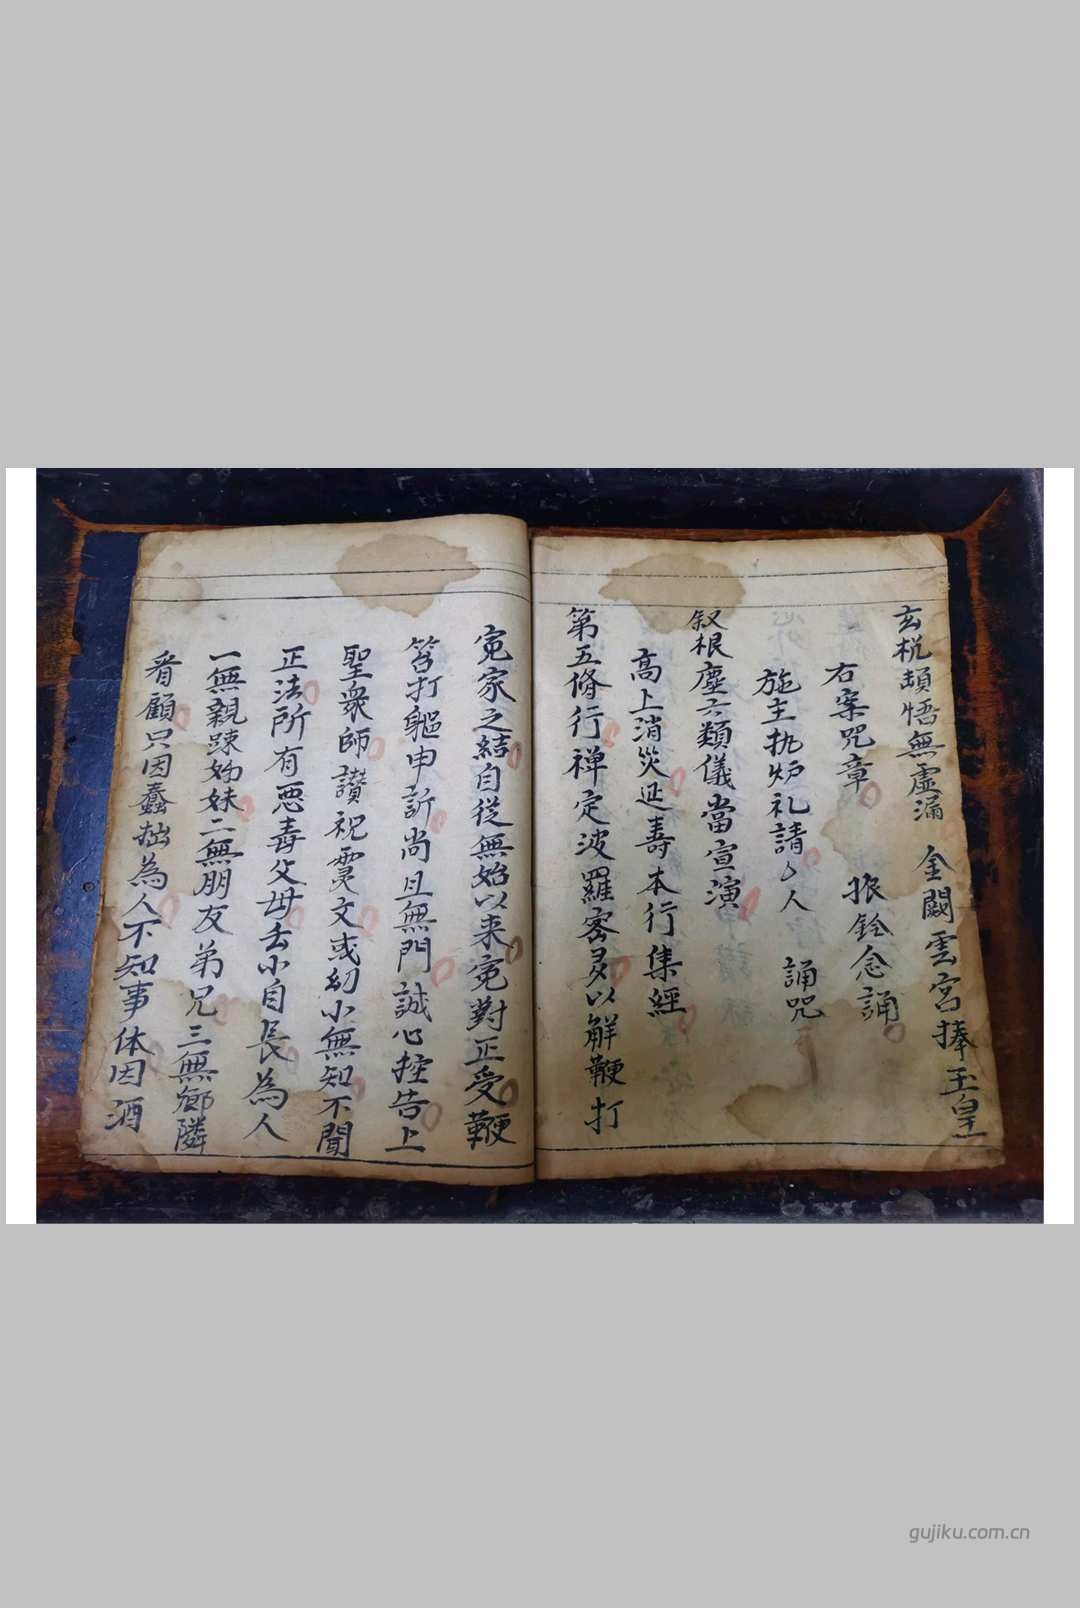 玄枕頓悟無虛漏　金闕雲宮捧玉皇
右案咒章　振鈴念誦
施主执炉礼請〻人　誦咒
叙根塵六類儀當宣演
高上消災延壽本行集經
第五脩行禅定波羅密多以解鞭打
冤家之結自從無始以来冤對正受鞭
笞打軀申訴尚且無門誠心控告上
聖衆師讃祝霊文或幻小無知不聞
正法所有恶毒父母去小自長為人
一無親踈姊妹二無朋友弟兄三無鄉隣
看顧只因蠢拙為人不知事体因酒
gujiku.com.cn